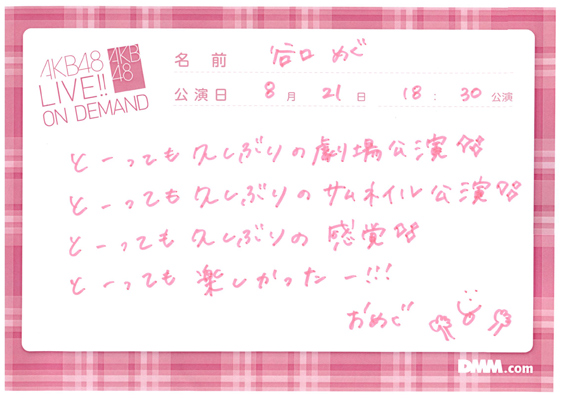 AKB48
LIVE!!
ON DEMAND
AKB
48
名前 谷口 めぐ
公演日 8月 21日 18:30公演
とーっても久しぶりの劇場公演
とーっても久しぶりのサムネイル公演
とーっても久しぶりの感覚
とーっても楽しかったー!!!
おめぐ
DMM.com